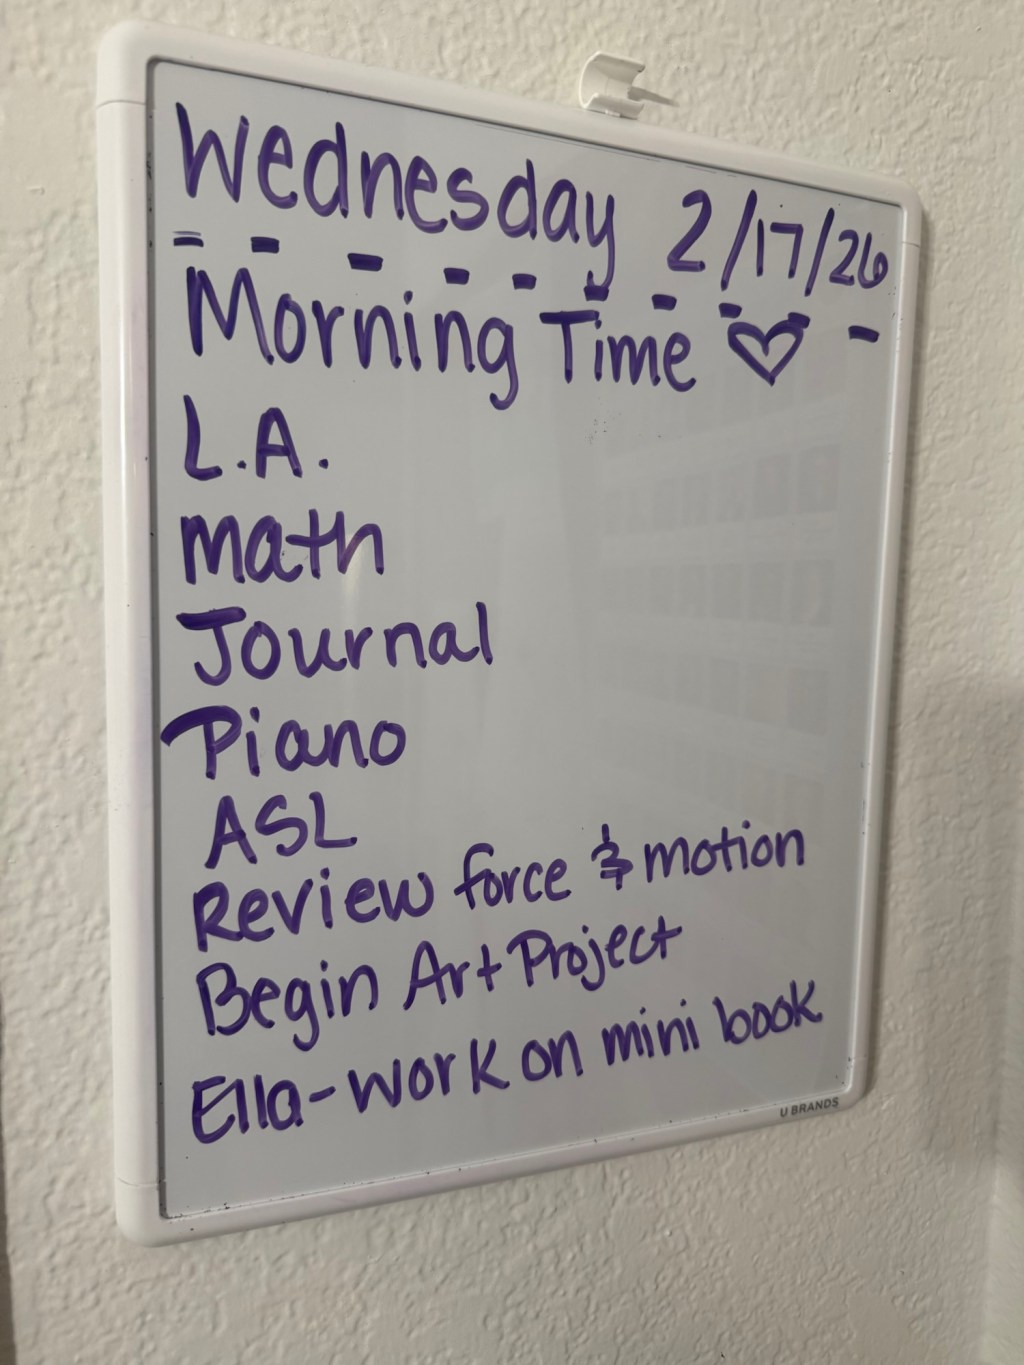 Wednesday 2/17/26
Morning Time ♡
L.A.
Math
Journal
Piano
ASL
Review force & motion
Begin Art Project
Ella-work on mini book
U BRANDS